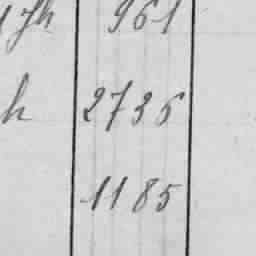 h 961
h 2736
1185